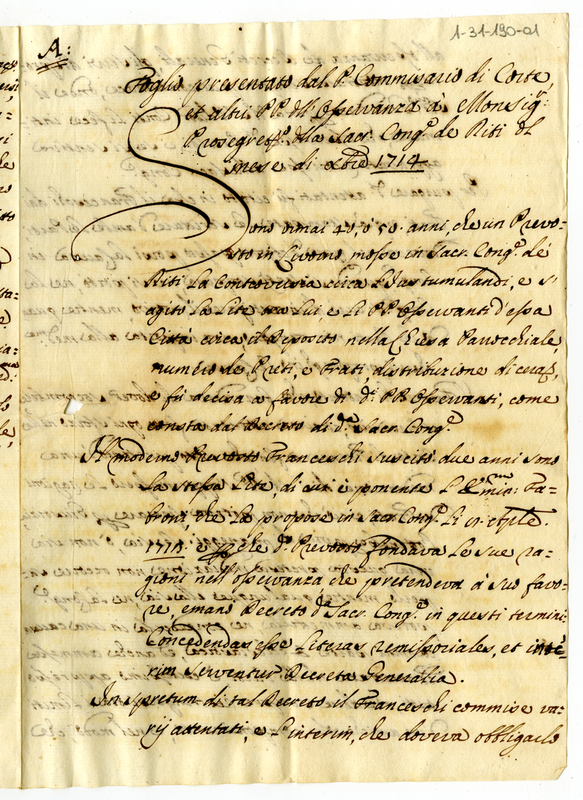 1-31-190-01
A:
Foglio presentato dal P. Commissario di Corte,
et altri PP. dll' Osservanza à Monsig.r
Prosegret.o dlla Sacr. Cong.e de Riti dl
mese di Xbre 1714
Sono ormai 40, ò 50. anni, che un Prevo-
sto in Livorno mosse in Sacr. Cong.e de
Riti la Controversia circa l'Jus tumulandi, e s'
agitò la Lite tra Lui, e li PP. Osservanti d'essa
Città circa il Deposito nella Chiesa Parrocchiale,
numero de Preti, e Frati, distribuzione di cera,
e fù decisa a favore di d.i PP. Osservanti, come
consta dal Decreto di d.a Sacr. Cong.e
Il moderno Prevosto Franceschi suscitò due anni sono
la stessa Lite, di cui è ponente l'
troni, che la propose in Sacr. Cong.e li
1714. e che d.o Prevosto fondava le sue ra-
gioni nell'osservanza che pretendeva à suo favo-
re, emanò Decreto d.a Sacr. Cong.e in questi termini
Concedendas esse Literas remissoriales, et inte-
rim serventur Decreta Generalia.
In spretum di tal Decreto il Franceschi commise va-
rij attentati, e l'interim, che doveva obbligarlo